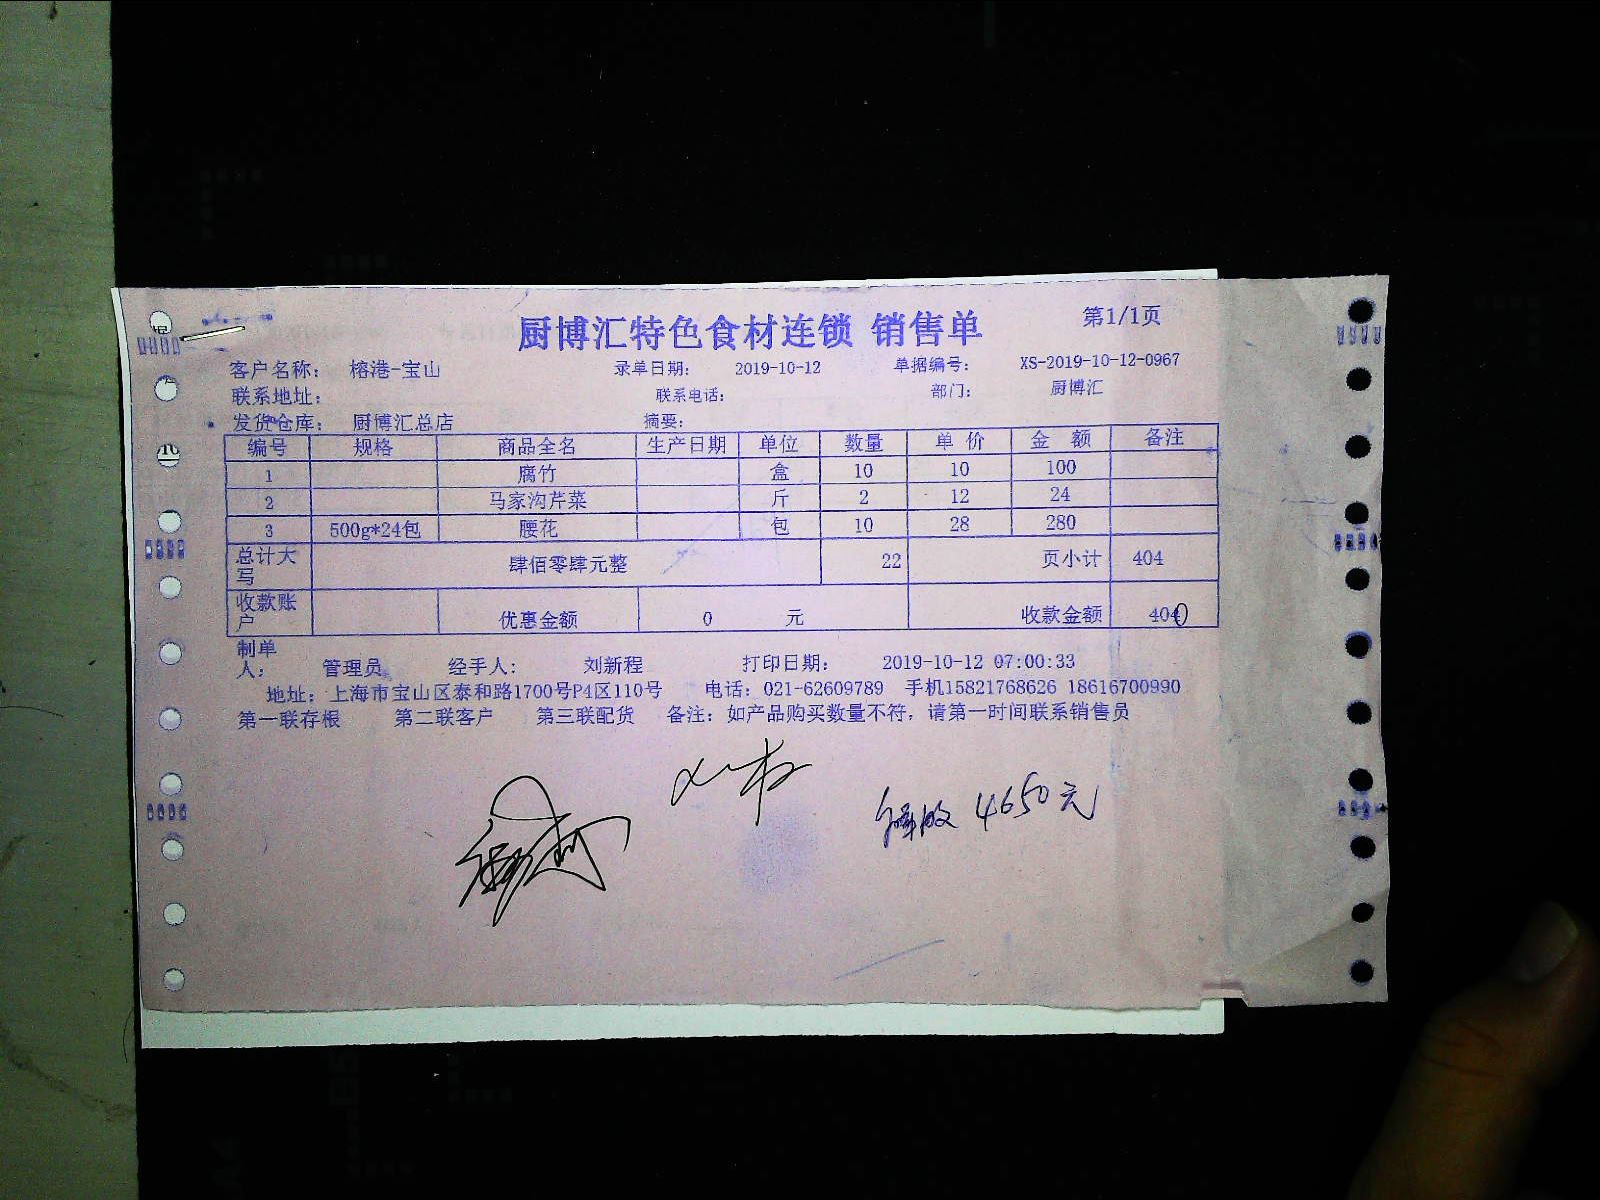 厨博汇特色食材连锁 销售单 第1/1页
客户名称： 榕港-宝山 录单日期： 2019-10-12 单据编号： XS-2019-10-12-0967
联系地址： 联系电话： 部门： 厨博汇
发货仓库： 厨博汇总店 摘要：
编号 规格 商品全名 生产日期 单位 数量 单 价 金 额 备注
1 腐竹 盒 10 10 100
2 马家沟芹菜 斤 2 12 24
3 500g*24包 腰花 包 10 28 280
总计大写 肆佰零肆元整 22 页小计 404
收款账户 优惠金额 0 元 收款金额 404
制单人： 管理员 经手人： 刘新程 打印日期： 2019-10-12 07:00:33
地址：上海市宝山区泰和路1700号P4区110号 电话：021-62609789 手机15821768626 18616700990
第一联存根 第二联客户 第三联配货 备注：如产品购买数量不符，请第一时间联系销售员
4650元